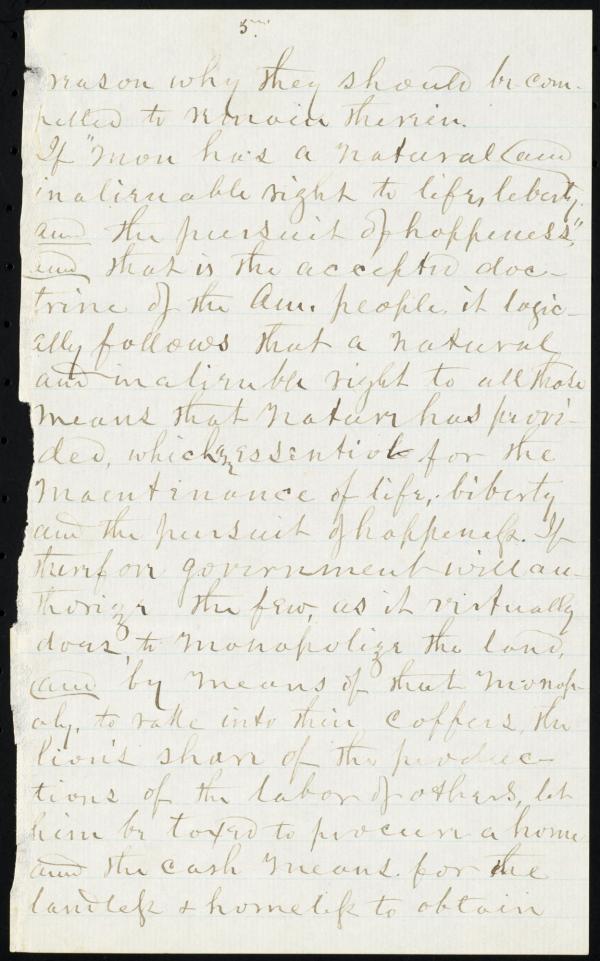 5
reason why they should be com-
pelled to remain therein.
If "Man has a natural and
inalienable right to life, liberty,
and the pursuit of happeness,"
and that is the accepted doc-
trine of the Am. people, it logic-
ally follows that a natural
and inalienble right to all those
means that Nature has provi-
ded, which essential for the
Maentinance of life, liberty
and the pursuit of happeness. If
therefore government will au-
thorize the few, as it virtually
does, to monopolize the land,
and by means of that Monop-
oly, to rake into their coffers, the
lion's share of the produc-
tions of the labor of others, let
him be taxed to procure a home
and the cash means for the
landless & homeless to obtain